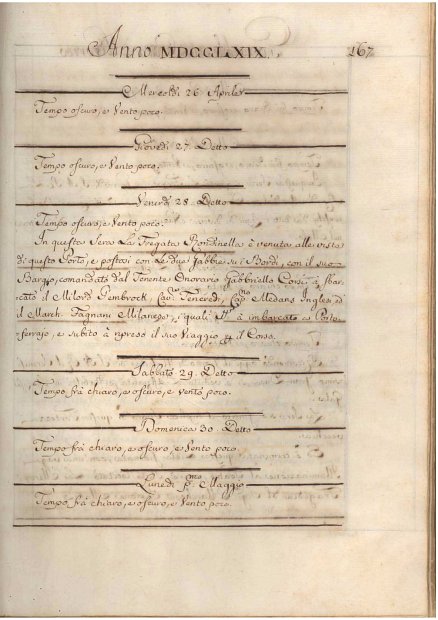 Anno MDCCLXIX. 167
Mercoldì 26 Aprile
Tempo oscuro, e Vento poco.
Giovedì 27. Detto
Tempo oscuro, e Vento poco.
Venerdì 28. Detto
Tempo oscuro, e Vento poco.
In questa Sera La Fregata Rondinella è venuta alla vista
di questo Porto, e postasi con Le due Gabbie su i Bordi, con il suo
Barco, comandato dal Tenente Onorario Gabbriello Corsi, à sbar-
cato il Milord Pembrock, Cav.r Teneredi, Cap.no Medans Inglesi ed
il March. Fagnani Milanese, i quali à imbarcato a Porto
ferrajo, e subito à ripreso il suo Viaggio il Corso.
Sabbato 29. Detto
Tempo frà chiaro, e oscuro, e vento poco.
Domenica 30. Detto
Tempo frà chiaro, e oscuro, e Vento poco.
Lunedì p.mo Maggio
Tempo frà chiaro, e oscuro, e Vento poco.